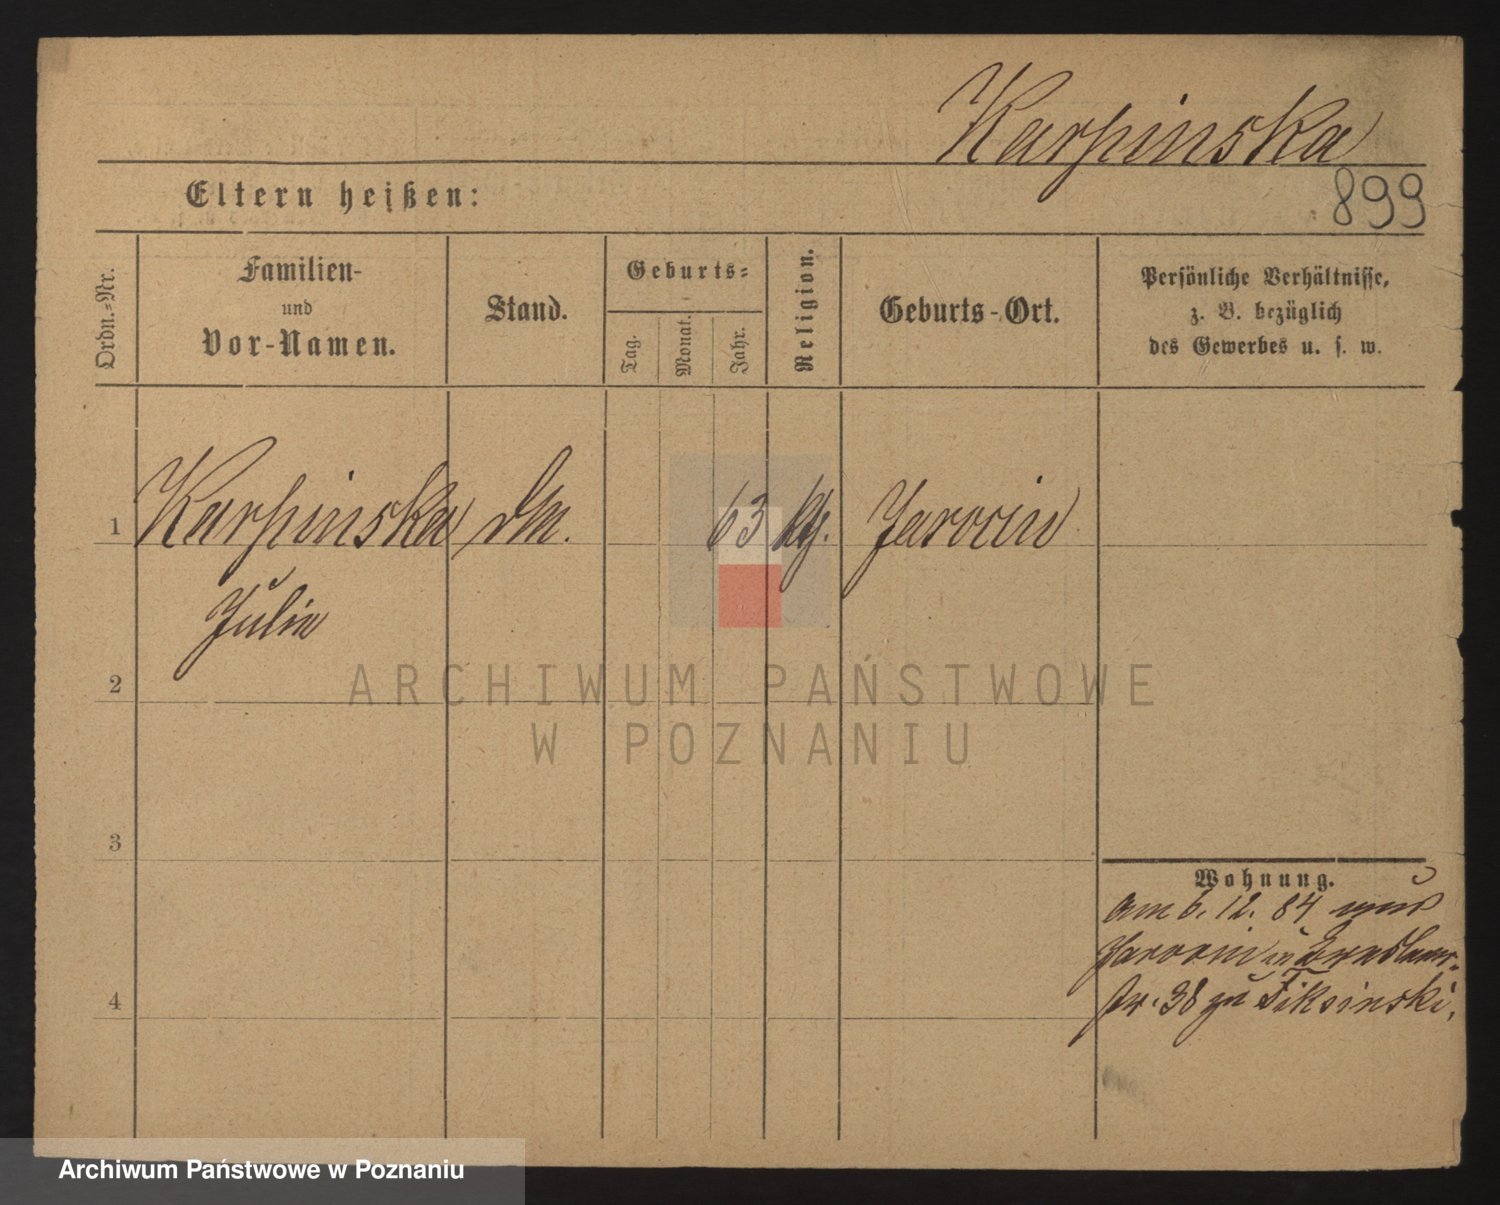 Karpinska
Eltern heißen:
899
Ordn.-Nr.
Familien-
und
Vor-Namen.
Stand.
Geburts-
Tag.
Monat.
Jahr.
Religion.
Geburts-Ort.
Persönliche Verhältnisse,
z. B. bezüglich
des Gewerbes u. s. w.
1 Karpinska 63 Jarocin
Julie
2
3
4
Wohnung.
am 6. 12. 84 aus
Jarocin in
str. 38 zu Fiksinski.
ARCHIWUM PAŃSTWOWE
W POZNANIU
Archiwum Państwowe w Poznaniu